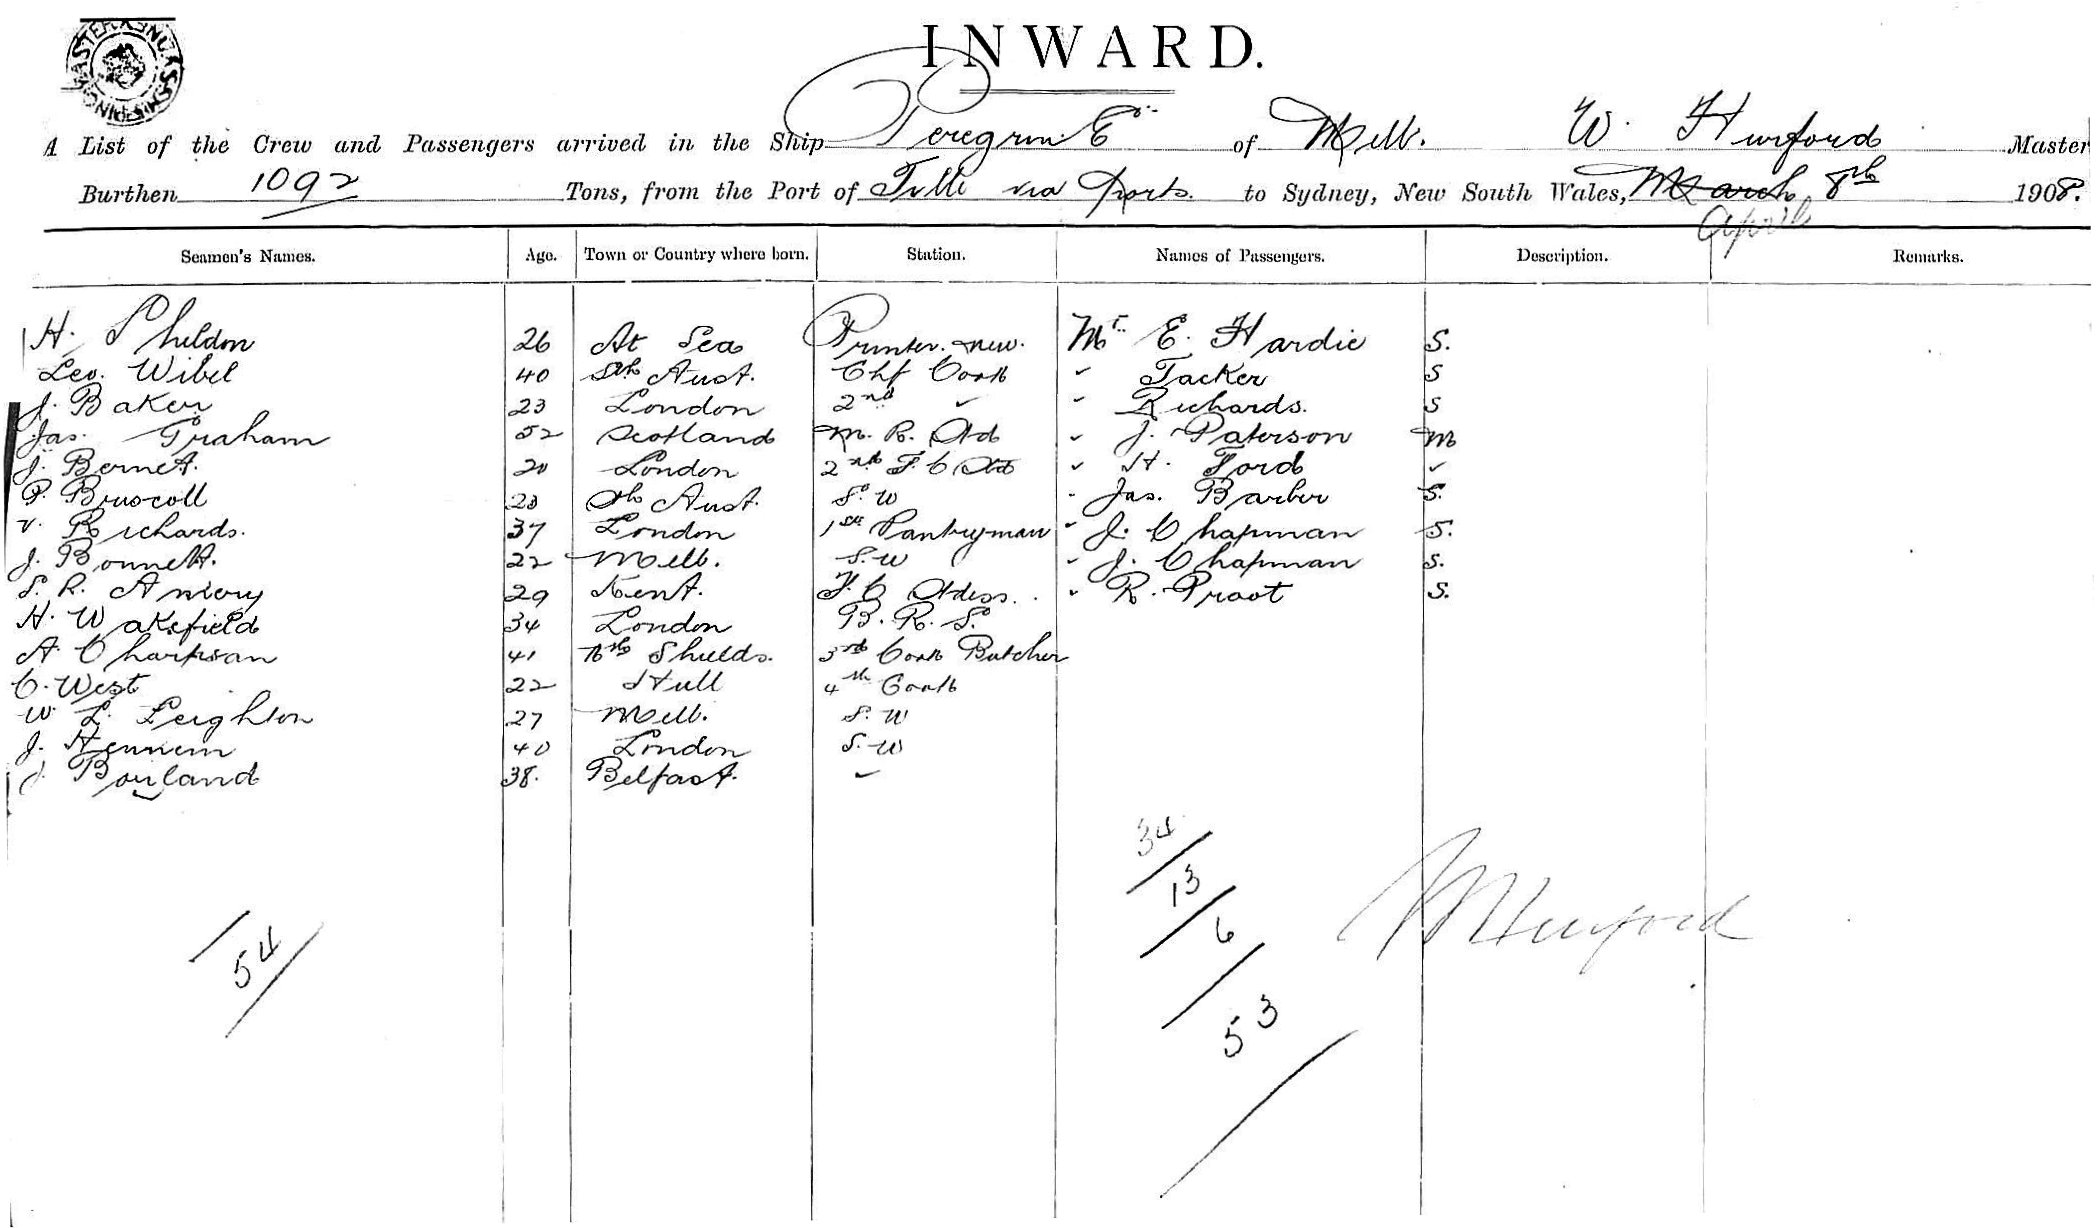 INWARD.
A List of the Crew and Passengers arrived in the Ship Peregrine of Melb. W. Hurford Master
Burthen 1092 Tons, from the Port of Tville via ports. to Sydney, New South Wales, March 8th 1908.
April
Seamen's Names. Age. Town or Country where born. Station. Names of Passengers. Description. Remarks.
H. Sheldon 26 At Sea Printer. new. Mr E. Hardie S.
Leo. Wibel 40 Sth Aust. Chf Cook " Tacker S
J. Baker 23 London 2nd " " Richards. S
Jas. Graham 52 Scotland M. R. Std " J. Paterson M
J. Bernet. 20 London 2nd F. C Std " H. Ford "
P. Bruscoll 23 Sth Aust. S. W " Jas. Barber S.
V. Richards. 37 London 1st Pantryman " J. Chapman S.
J. Bonnett. 22 Melb. S. W " J. Chapman S.
S. R. 29 Kent. F. C Stdess. " R. Proot S.
H. Wakefield 34 London B. R. S.
A. 41 Nth Shields. 3rd Cook Butcher
C. West 22 Hull 4th Cook
W. L. Leighton 27 Melb. S. W
J. Hennem 40 London S. W
J. Bouland 38. Belfast. "
34
13
6
53
54
W Hurford